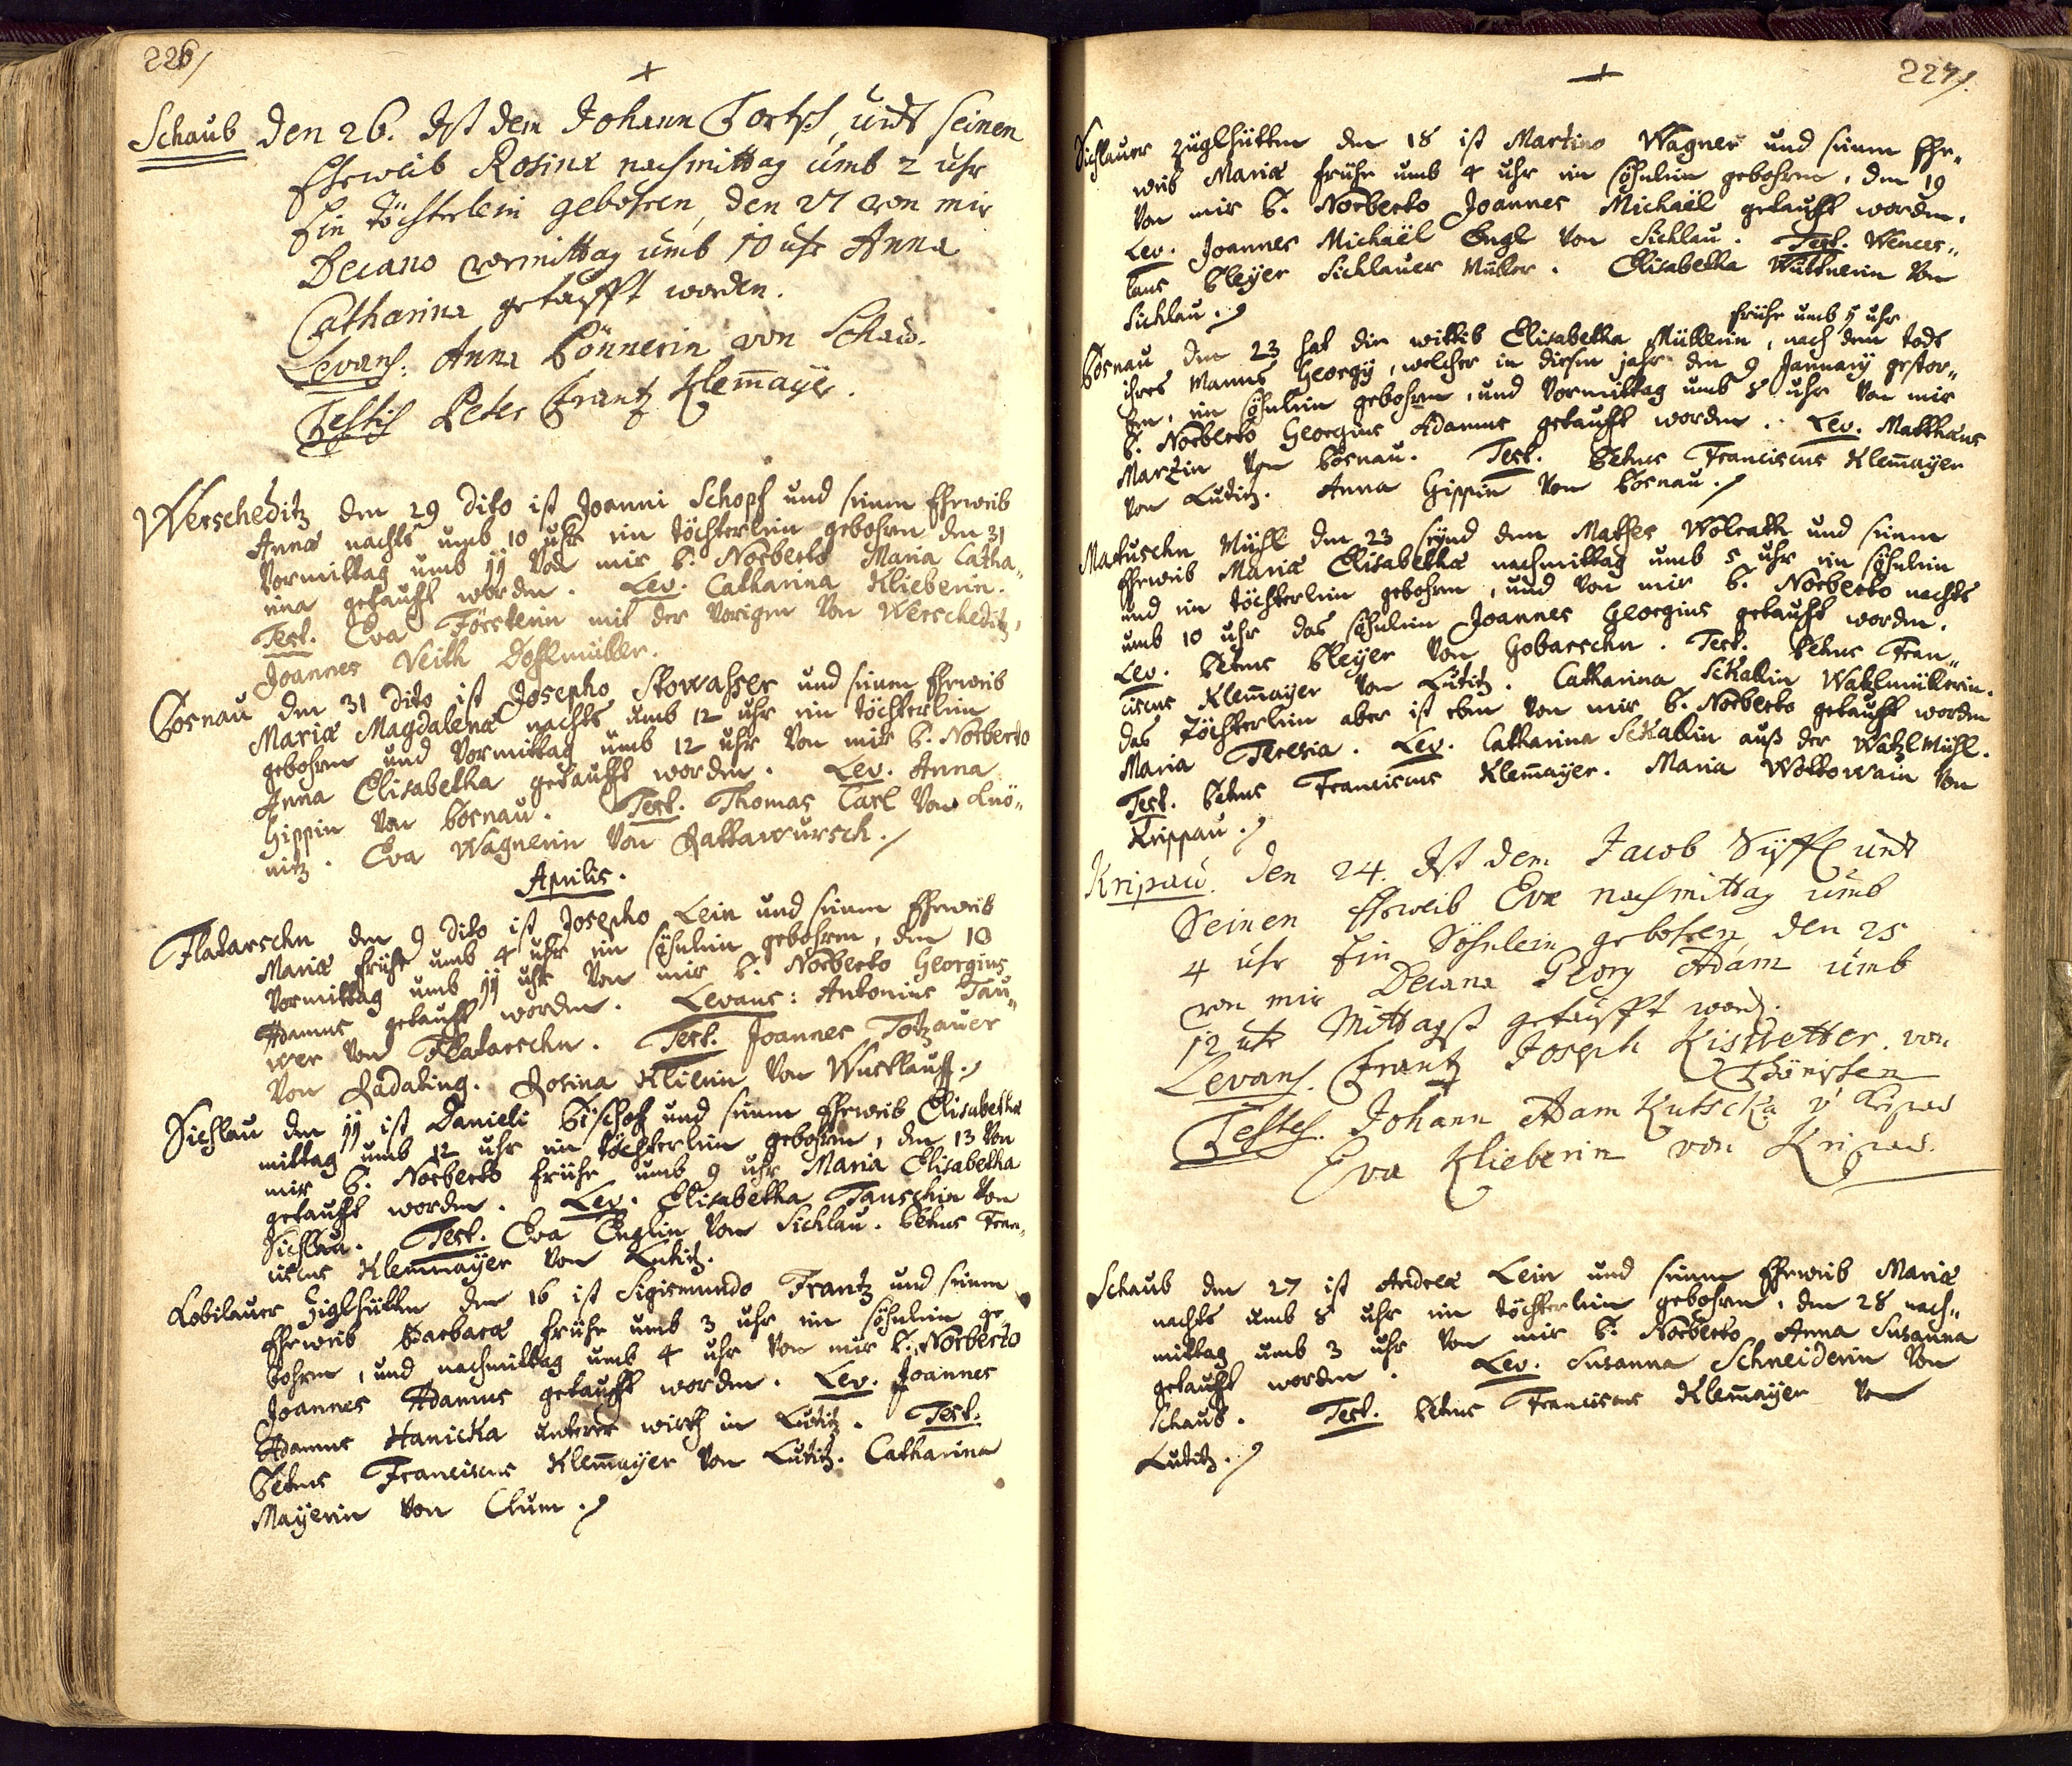 226/
+
Schaub den 26. Ist dem Johann Tortsch, undt seinen
Eheweib Rosina nachmittag umb 2 uhr
Ein töchterlein gebohren, den 27 von mir
Decano vormittag umb 10 uhr Anna
Catharina getaufft worden.
Levans: Anna Bönnerin von Schaub.
Testis Peter Frantz Klem̄aÿer.
Werscheditz den 29 dito ist Joanni Schopf und seinem Eheweib
Annæ nachts umb 10 uhr ein töchterlein gebohren den 31
Vormittag umb 11 Von mir P. Norberto Maria Catha„
rina getaufft worden. Lev. Catharina Klieberin.
Test. Eva Försterin mit der Vorigen Von Werscheditz,
Joannes Veith Dohlmüller.
Pornau den 31 dito ist Josepho Stowasser und seinem Eheweib
Mariæ Magdalenæ nachts umb 12 uhr ein töchterlein
gebohren und Vormittag umb 12 uhr Von mir P. Norberto
Anna Elisabetha getaufft worden. Lev. Anna
Hippin Von Pornau. Test. Thomas Carl Von Knö„
nitz. Eva Wagnerin Von Rattawursch./
Aprilis.
Flatarschn den 9 dito ist Josepho Lein und seinem Eheweib
Mariæ frühe umb 4 uhr ein söhnlein gebohren, den 10
Vormittag umb 11 uhr Von mir P. Norberto Georgius
Adamus getaufft worden. Levans: Antonius Tau„
wer Von Flatarschn. Test. Joannes Totzauer
Von Radating. Rosina Klierin Von Wurklauff./
Sichlau den 11 ist Danieli Bischof und seinem Eheweib Elisabethæ
mittag umb 12 uhr ein töchterlein gebohren, den 13 Von
mir P. Norberto frühe umb 9 uhr Maria Elisabetha
getaufft worden. Lev. Elisabetha Tauschin Von
Sichlau. Test. Eva Englin Von Sichlau. Petrus Fran„
ciscus Klemmaÿer Von Lutitz.
Kobilauer Ziglhütten den 16 ist Sigismundo Frantz und seinem
Eheweib Barbaræ frühe umb 3 uhr ein söhnlein ge„
bohren, und nachmittag umb 4 uhr Von mir P. Norberto
Joannes Adamus getaufft worden. Lev. Joannes
Adamus Hanicka unterer wirth in Lutitz. Test.
Petrus Franciscus Klem̄aÿer Von Lutitz. Catharina
Maÿerin Von Clum./
227/.
+
Sichlauer züglhütten den 18 ist Martino Wagner und seinem Ehe„
weib Mariæ frühe umb 4 uhr ein söhnlein gebohren, den 19
Von mir P. Norberto Joannes Michaël getaufft worden.
Lev. Joannes Michaël Engl Von Sichlau. Test. Wences„
laus Pleÿer Sichlauer Müller. Elisabetha Wüttnerin Von
Sichlau./
frühe umb 5 uhr
Pornau den 23 hat die wittib Elisabetha Müllerin, nach dem todt
ihres Manns Georgÿ, welcher in diesem jahr den 9 Januarÿ gestor„
ben, ein söhnlein gebohren, und Vormittag umb 8 uhr Von mir
P. Norberto Georgius Adamus getaufft worden. Lev. Matthæus
Martin Von Pornau. Test. Petrus Franciscus Klem̄aÿer
Von Lutitz. Anna Hippin Von Pornau./
Matuschn Mühl den 23 seynd dem Mathes Wolrath und seinem
Eheweib Mariæ Elisabethæ nachmittag umb 5 uhr ein söhnlein
und ein töchterlein gebohren, und Von mir P. Norberto nachts
umb 10 uhr das söhnlein Joannes Georgius getaufft worden.
Lev. Petrus Pleÿer Von Hobarschn. Test. Petrus Fran„
ciscus Klem̄aÿer Von Lutitz. Catharina Sckallin Watzlmüllerin.
das töchterlein aber ist eben Von mir P. Norberto getaufft worden
Maria Teresia. Lev. Catharina Sckallin auß der Watzlmühl.
Test. Petrus Franciscus Klem̄aÿer. Maria Wottowain Von
Krippau./
Kripau. den 24. Ist dem Jacob Süssl undt
Seinen Eheweib Eva nachmittag umb
4 uhr Ein Söhnlein gebohren, den 25
von mir Decano Georg Adam umb
12 uhr Mittagß getaufft word.
Levans. Frantz Joseph Kiswetter von
Thönissen
Testes. Johann Adam Kutscka v Kripau
Eva Klieberin von Kripau.
Schaub den 27 ist Andreæ Lein und seinem Eheweib Mariæ
nachts umb 8 uhr ein töchterlein gebohren, den 28 nach„
mittag umb 3 uhr Von mir P. Norberto Anna Susanna
getaufft worden. Lev. Susanna Schneiderin Von
Schaub. Test. Petrus Franciscus Klem̄aÿer Von
Lutitz./